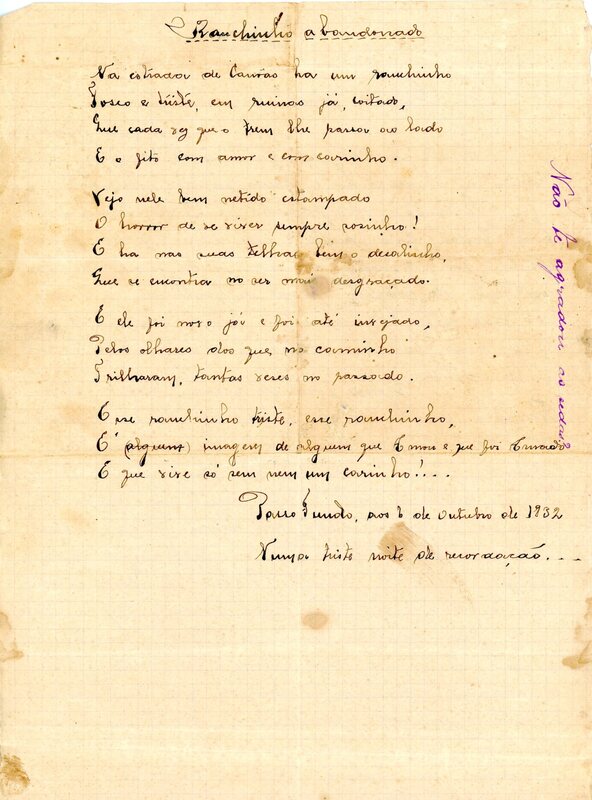 Ranchinho abandonado
Na estrada de Canôas ha um ranchinho
Tosco e triste, em ruinas já, coitado,
Que cada vez que o trem lhe passa ao lado
E o fito com amor e com carinho.
Vejo nele bem netido estampado
O horror de se viver sempre sozinho!
E ha nas suas telhas bem o
Que se encontra no ser mais desgraçado.
E ele foi novo já e foi até invejado,
Pelos olhares dos que no caminho
Trilharam, tantas vezes no passado.
Esse ranchinho triste, esse ranchinho,
E' (alguem) imagem de alguem que Amou e que foi Amado
E que vive só sem nem um carinho!...
Passo Fundo, aos 6 de Outubro de 1932
Numa triste noite de recordação...
Não te agradou